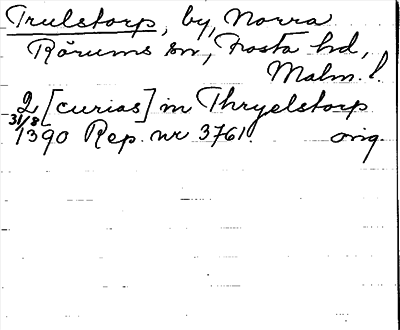 Trulstorp, by, Norra
Rörums sn, Frosta hd,
Malm. l.
2 [curias] in Thryelstorp
31/8 1390 Rep. nr 3761. orig.